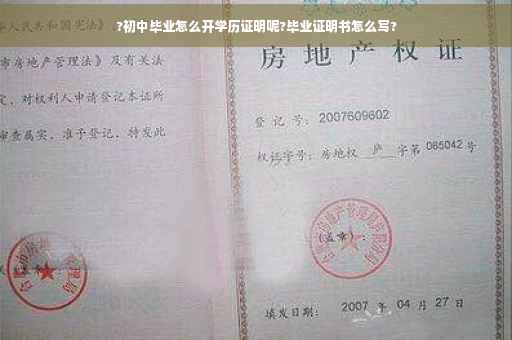 ?初中毕业怎么开学历证明呢?毕业证明书怎么写?
人民共和国宪法》
市房地产管理法》及有关法
定，对权利人申请登记本证所
审查属实，准予登记，特发此
房地产权证
登记号：2007609602
权证字号：房地权 庐 字第 065042 号
(盖章)：
填发日期：2007 年 04 月 27 日